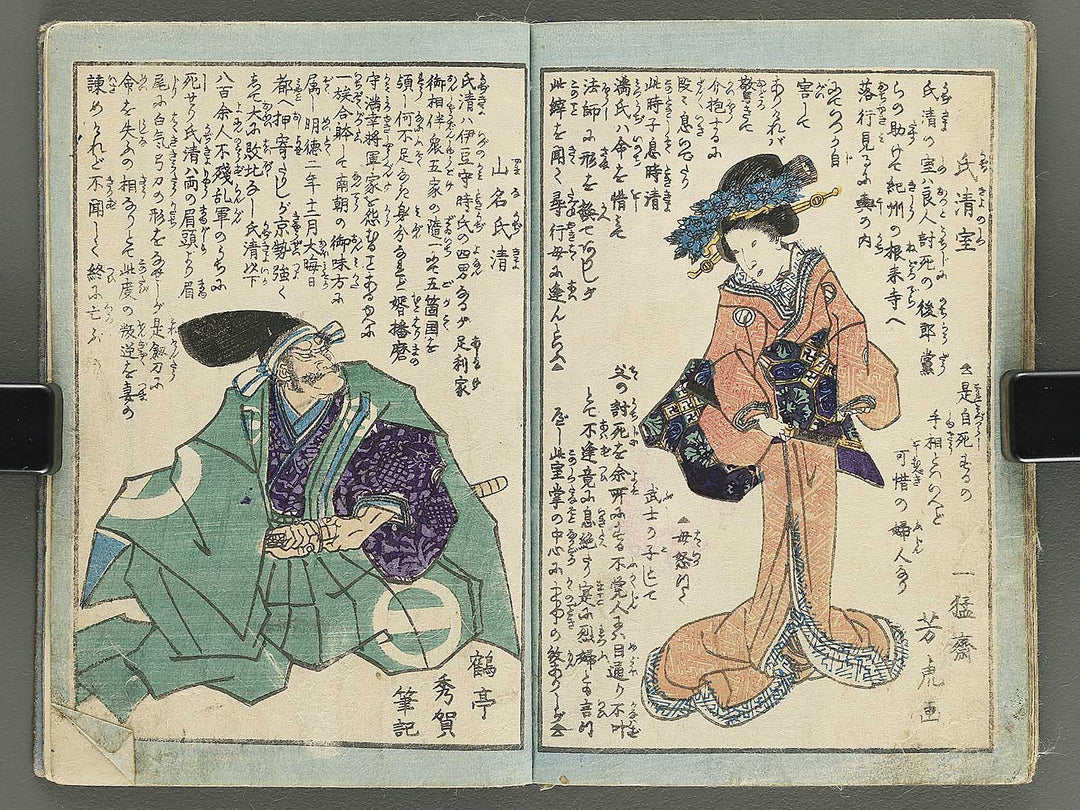 氏清室
氏清の室ハ良人討死の後郎黨
らの助けて紀州の根来寺へ
落行見るに輿の内
にてのち自
害し
ありけれバ
驚きて
介抱するに
段〻息いでたり
此時子息時清
満氏ハ命を惜ミて
法師に形を
此 を聞て尋行母に逢んとら▲
▲母怒りて
武士の子として
父の討死を余所にする不覚人ハ目通り不叶
とて不逢竟に息絶たり寔に烈婦とも言つ
べし此室掌の中心に の あり
是自死するの
手相といへど
可惜の婦人なり
一猛齋
芳虎画
山名氏清
氏清ハ伊豆守時氏の四男なるが足利家
御相伴衆五家の随一にて五箇国を
領し何不足なき身分なるを 播磨
守満幸将軍家を怨むることあるゆへに
一族合躰して南朝の御味方に
属し明徳二年十二月大晦日
都へ押寄たりしが京勢強く
して大に敗北なし氏清以下
八百余人不残乱軍のうちに
死せり氏清ハ両の眉頭より眉
尾に白気弓刀の形をなせしが是劔刀に
命を失ふの相なりとて此度の叛逆を妻の
諫めけれど不聞して終に亡ぶ
鶴亭
秀賀
筆記